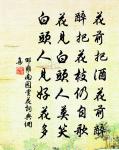 花前把酒花前醉
醉把花枝仍自歌
花見白頭人莫笑
白頭人見好花多
邵雍南園賞花詞典網
集